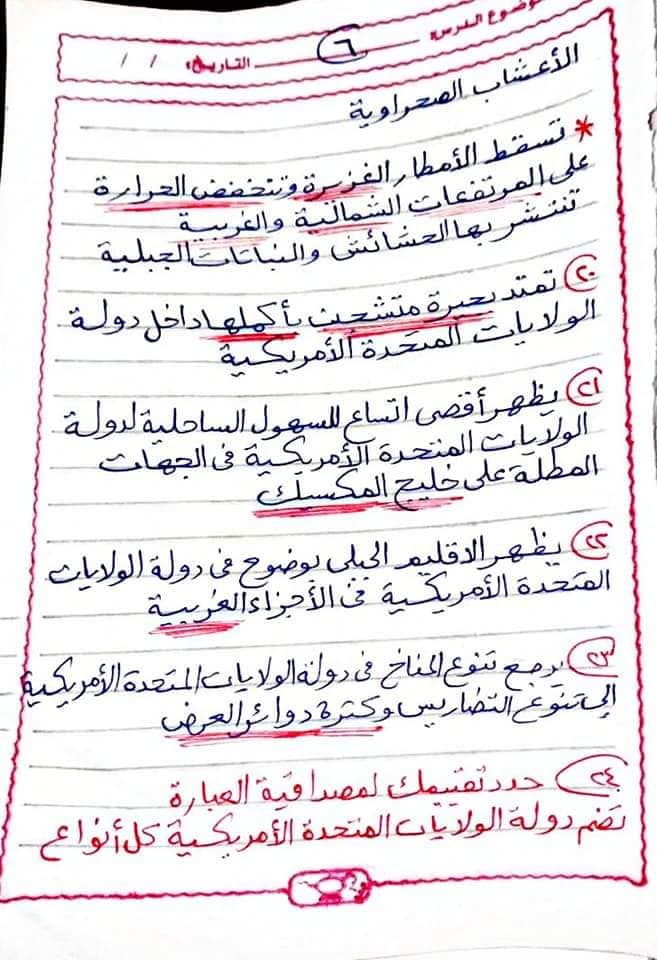 موضوع الدرس:
٦
التاريخ: / /
الأعشاب الصحراوية
* تسقط الأمطار الغزيرة وتنخفض الحرارة
على المرتفعات الشمالية والغربية
تنتشر بها الحشائش والنباتات الجبلية
٢٠ تمتد بحيرة متشجن بأكملها داخل دولة
الولايات المتحدة الأمريكية
٢١ يظهر أقصى اتساع للسهول الساحلية لدولة
الولايات المتحدة الأمريكية فى الجهات
المطلة على خليج المكسيك
٢٢ يظهر الاقليم الجبلى بوضوح فى دولة الولايات
المتحدة الأمريكية فى الأجزاء الغربية
٢٣ يرجع تنوع المناخ فى دولة الولايات المتحدة الأمريكية
إلى تنوع التضاريس وكثرة دوائر العرض
٢٤ حدد تقييمك لمصداقية العبارة
تضم دولة الولايات المتحدة الأمريكية كل أنواع